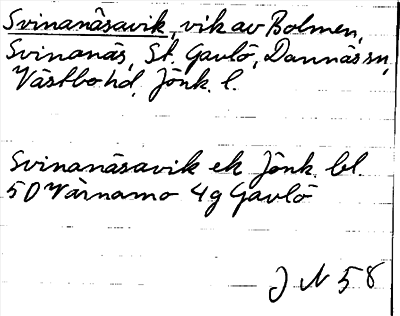 Svinanäsavik, vik av Bolmen,
Svinanäs, St. Gavlö, Dannäs sn,
Västbo hd, Jönk. l.
Svinanäsavik ek Jönk. bl.
5D Värnamo 4g Gavlö
J N 58